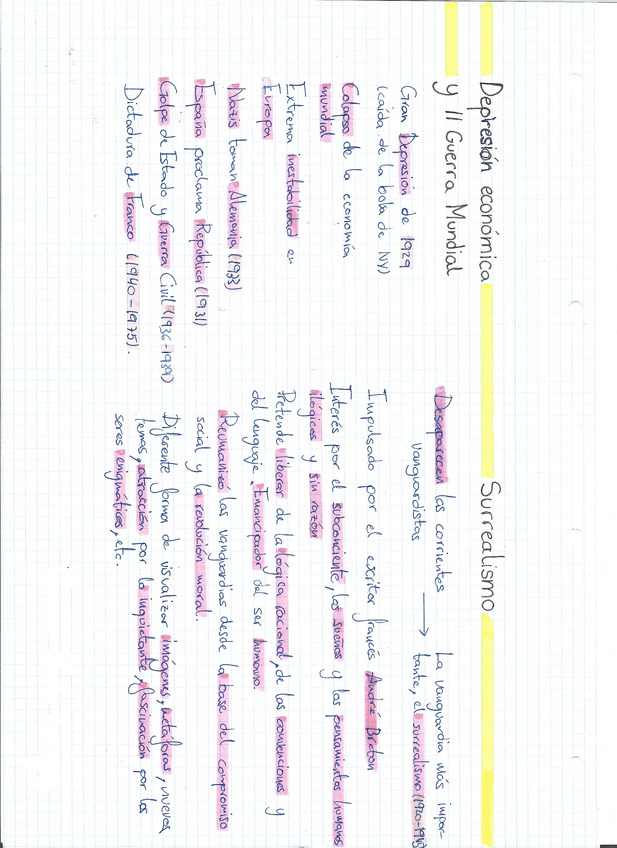 Depresión económica
y II Guerra Mundial
Gran Depresión de 1929
(caída de la bolsa de NY)
Colapso de la economía
mundial
Extrema inestabilidad en
Europa
Nazis toman Alemania (1933)
España proclama República (1931)
Golpe de Estado y Guerra Civil (1936-1939)
Dictadura de Franco (1940-1975).
Surrealismo
Desaparecen las corrientes
vanguardistas → La vanguardia más impor-
tante, el surrealismo (1920-1945
Impulsado por el escritor francés André Breton
Interés por el subconciente, los sueños y los pensamientos humanos
ilógicos y sin razón
Pretende liberar de la lógica racional, de las convenciones y
del lenguaje. Emancipador del ser humano.
Reumanizó las vanguardias desde la base del compromiso
social y la revolución moral.
Diferente forma de visualizar imágenes, metáforas, nuevos
temas, atracción por lo inquietante, fascinación por los
seres enigmáticos, etc.